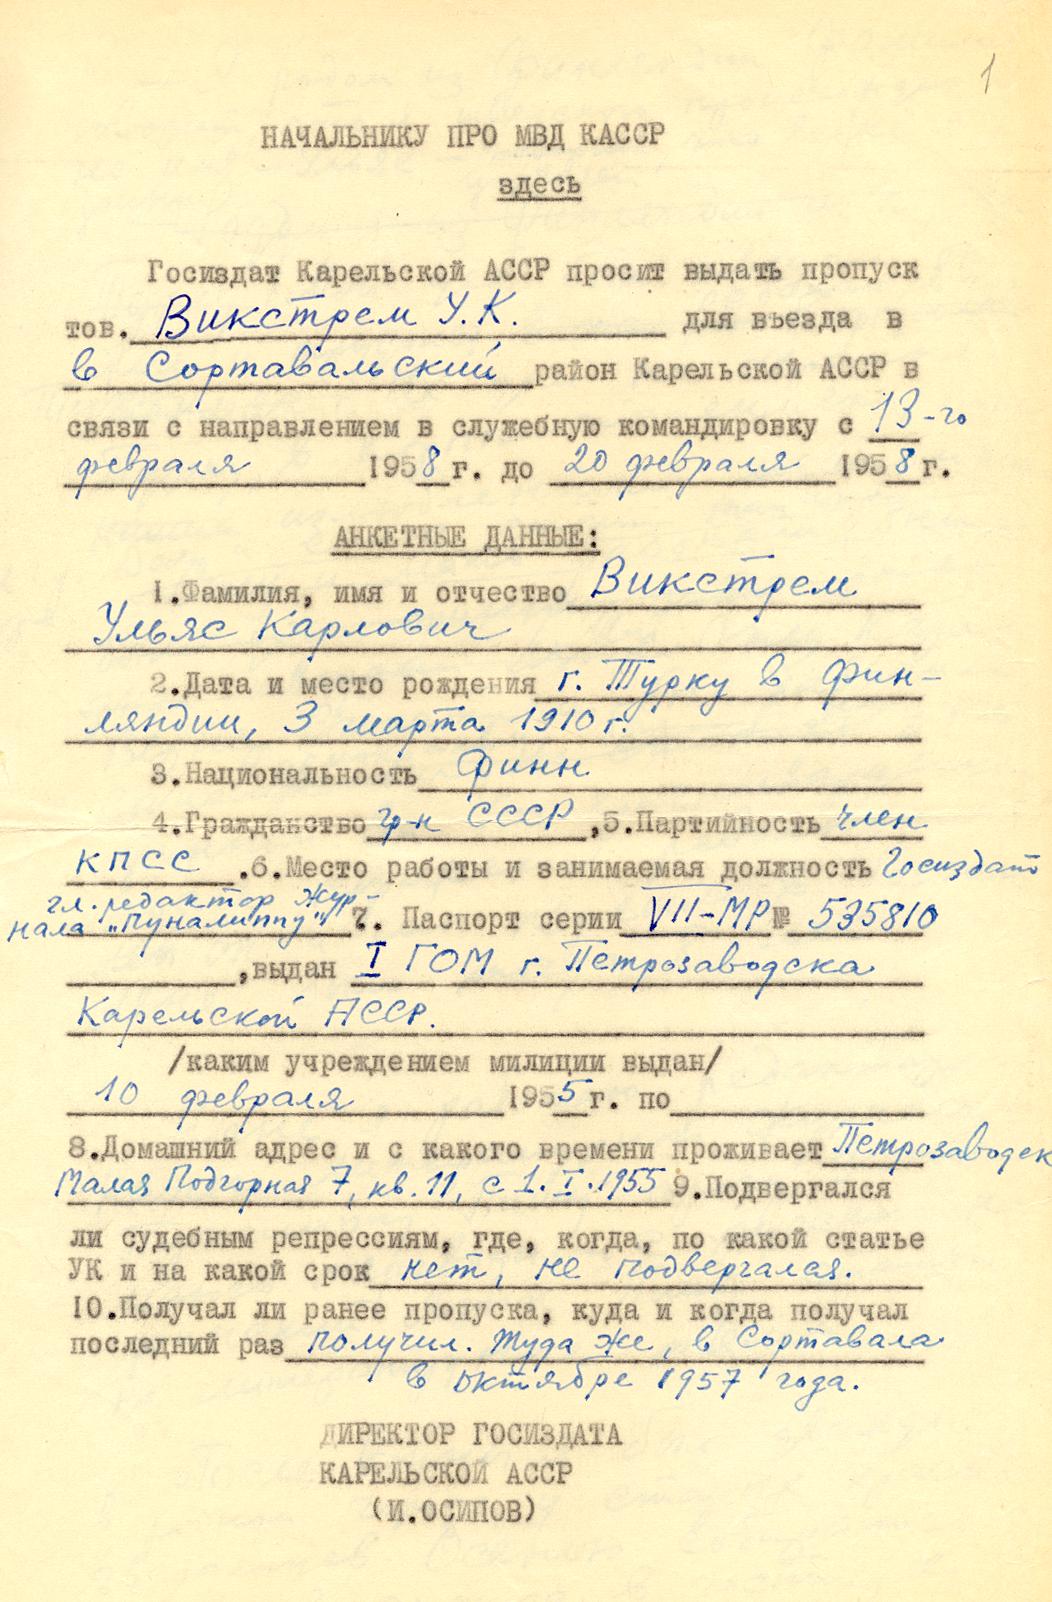 1
НАЧАЛЬНИКУ ПРО МВД КАССР
здесь
Госиздат Карельской АССР просит выдать пропуск
тов. Викстрем У.К. для въезда в
в Сортавальский район Карельской АССР в
связи с направлением в служебную командировку с 13-го
февраля 1958 г. до 20 февраля 1958 г.
АНКЕТНЫЕ ДАННЫЕ:
1.Фамилия, имя и отчество Викстрем
Ульяс Карлович
2.Дата и место рождения г. Турку в Фин-
ляндии, 3 марта 1910 г.
3.Национальность финн
4.Гражданство гр-н СССР,5.Партийность член
КПСС.6.Место работы и занимаемая должность Госиздат
гл. редактор жур-
нала „Пуналиппу" 7. Паспорт серии VII-МР № 535810
,выдан I ГОМ г. Петрозаводска
Карельской АССР.
/каким учреждением милиции выдан/
10 февраля 1955 г. по
8.Домашний адрес и с какого времени проживает Петрозаводск
Малая Подгорная 7, кв. 11, с 1.I.1955 9.Подвергался
ли судебным репрессиям, где, когда, по какой статье
УК и на какой срок нет, не подвергался.
10.Получал ли ранее пропуска, куда и когда получал
последний раз получил. Туда же, в Сортавала
в октябре 1957 года.
ДИРЕКТОР ГОСИЗДАТА
КАРЕЛЬСКОЙ АССР
(И.ОСИПОВ)